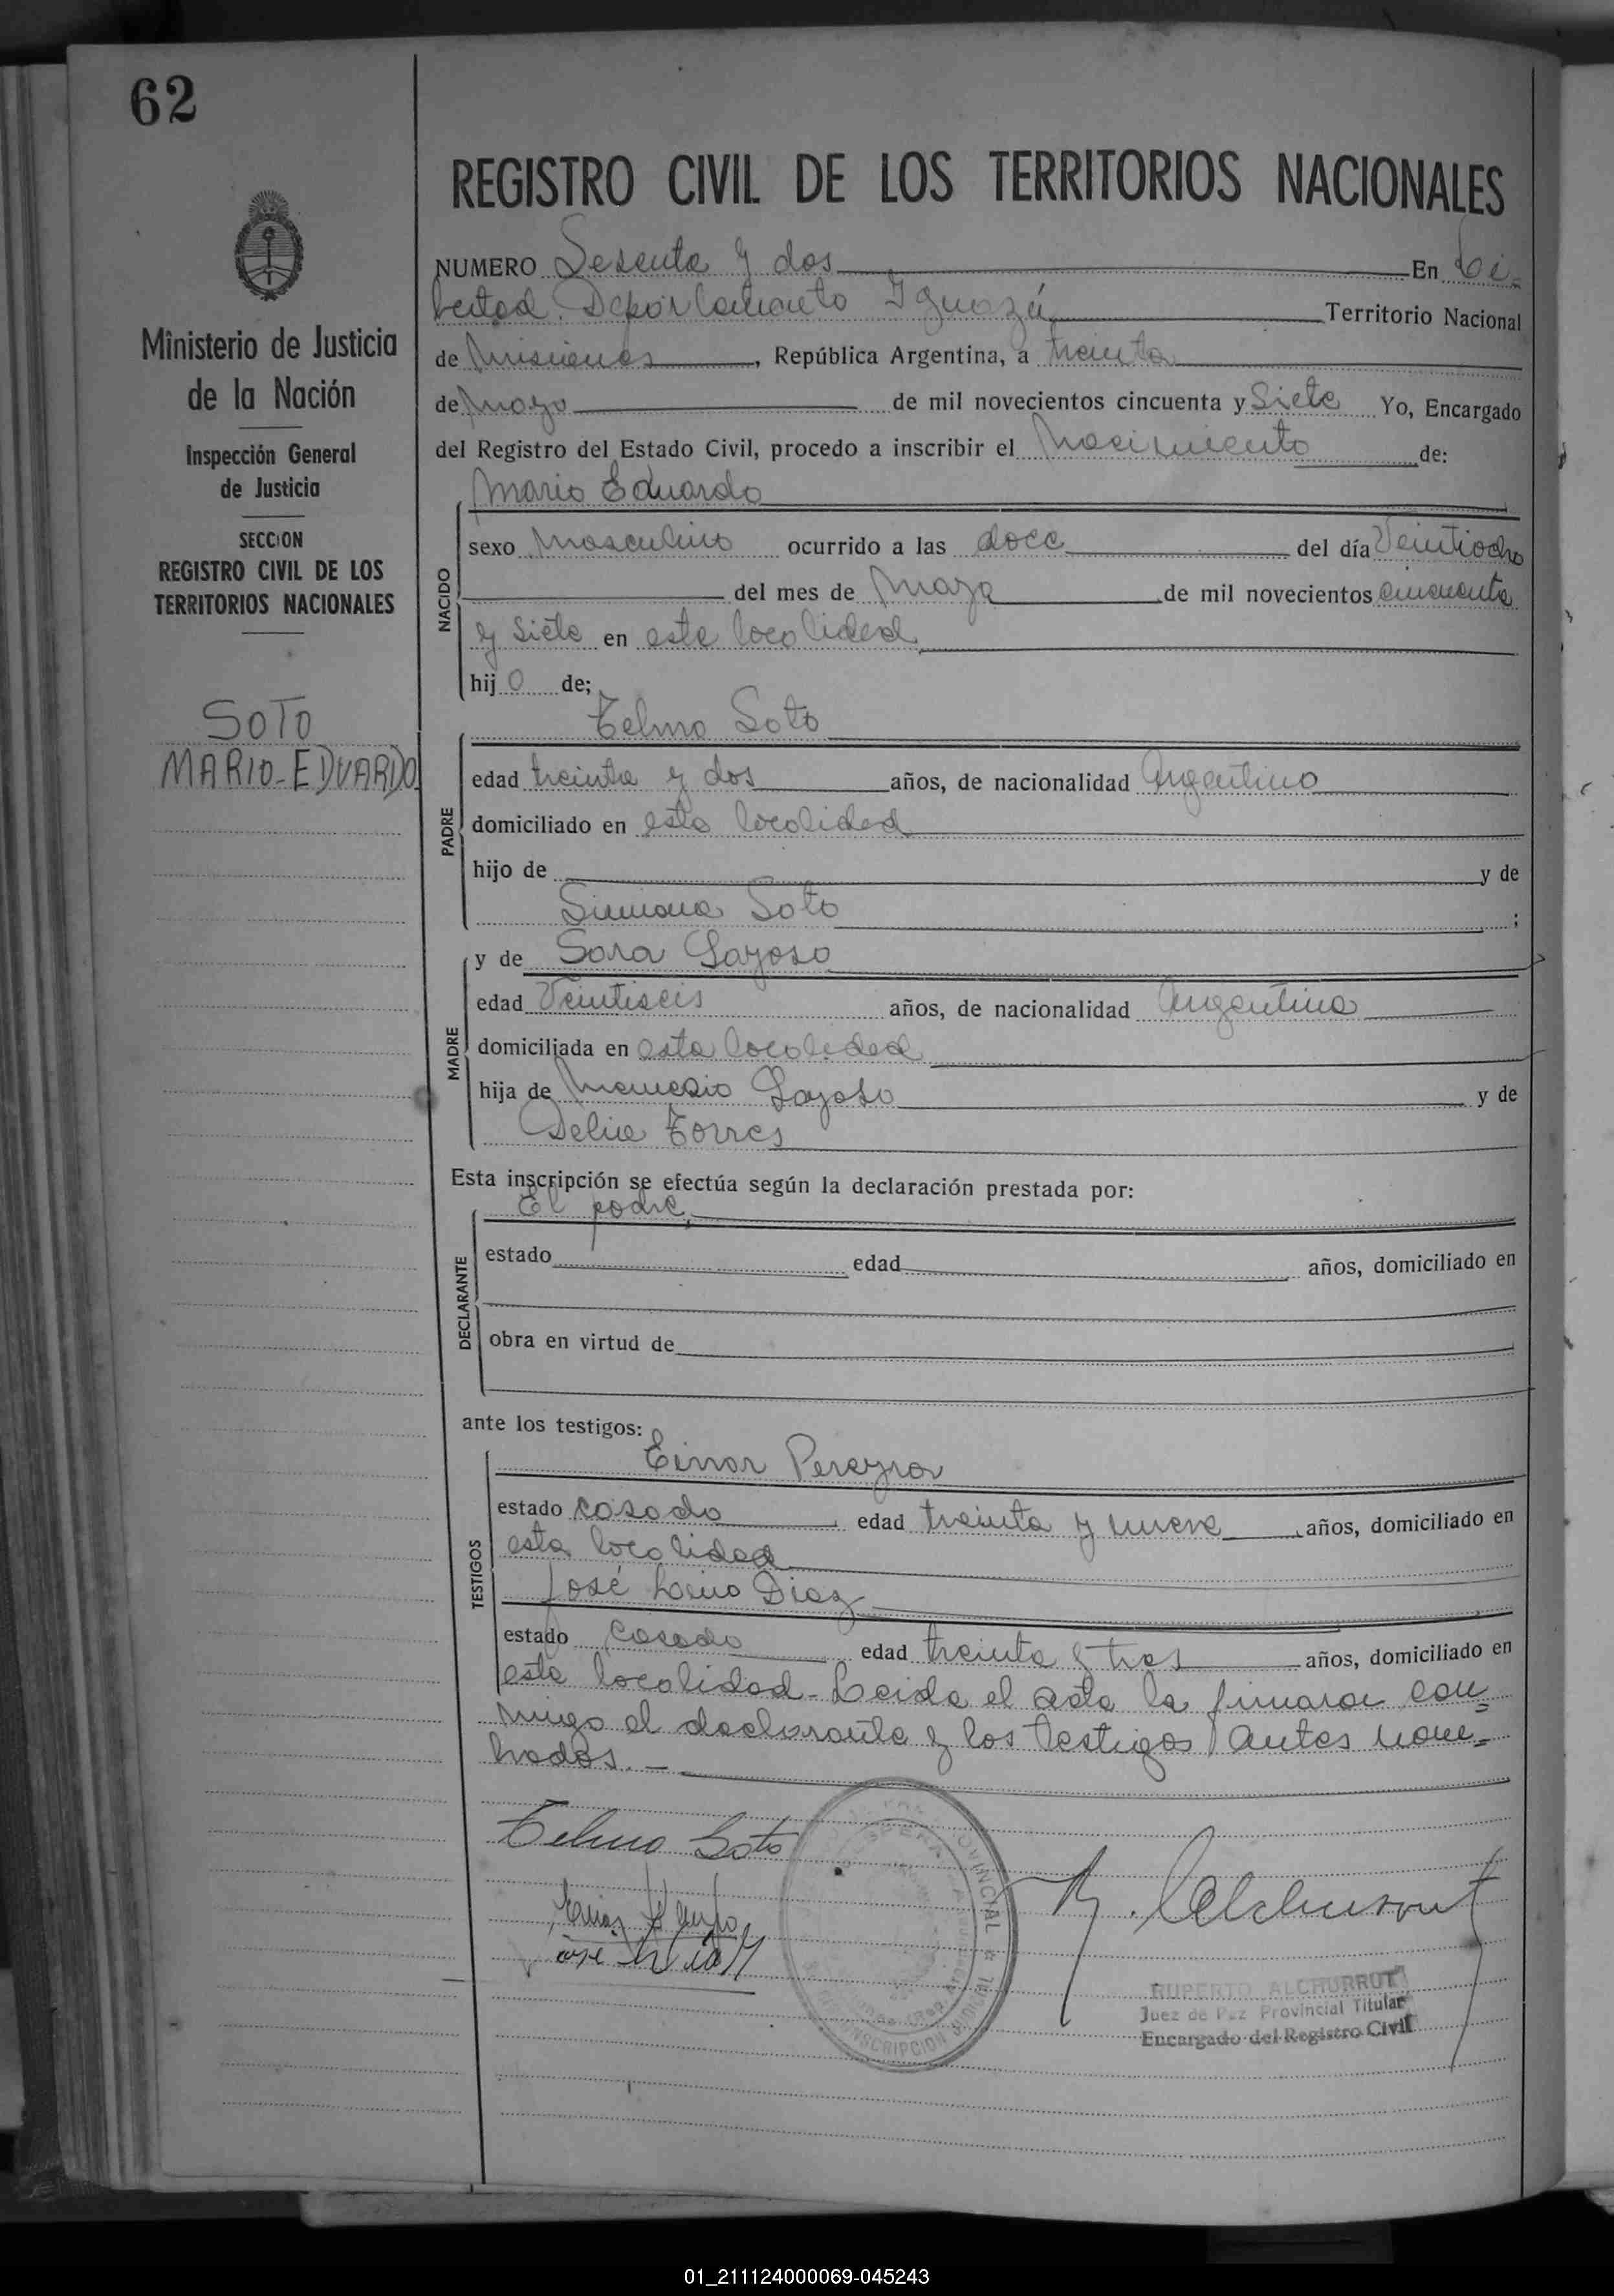 62
REGISTRO CIVIL DE LOS TERRITORIOS NACIONALES
Ministerio de Justicia
de la Nación
Inspección General
de Justicia
SECCION
REGISTRO CIVIL DE LOS
TERRITORIOS NACIONALES
SOTO
MARIO-EDUARDO
NUMERO Sesenta y dos En Li-
bertad. Departamento Iguazú Territorio Nacional
de Misiones, República Argentina, a treinta
de mayo de mil novecientos cincuenta y Siete Yo, Encargado
del Registro del Estado Civil, procedo a inscribir el Nacimiento de:
NACIDO
Mario Eduardo
sexo Masculino ocurrido a las doce del día Veintiocho
del mes de Mayo de mil novecientos cincuenta
y Siete en esta localidad
hijo de;
PADRE
Telmo Soto
edad treinta y dos años, de nacionalidad Argentino
domiciliado en esta localidad
hijo de y de
Simona Soto ;
MADRE
y de Sara Gayoso
edad Veintiseis años, de nacionalidad Argentina
domiciliada en esta localidad
hija de Nemesio Gayoso y de
Delia Torres
Esta inscripción se efectúa según la declaración prestada por:
DECLARANTE
El padre,
estado edad años, domiciliado en
obra en virtud de
ante los testigos:
TESTIGOS
Einar Pereyra
estado casado edad treinta y nueve años, domiciliado en
esta localidad
José Lino Diaz
estado Casado edad treinta y tres años, domiciliado en
esta localidad - Leida el acta la firmaron con=
migo el declarante y los testigos antes nom=
brados. -
Telmo Soto
R. Alchurrut
RUPERTO ALCHURRUT
Juez de Paz Provincial Titular
Encargado del Registro Civil
01_211124000069-045243